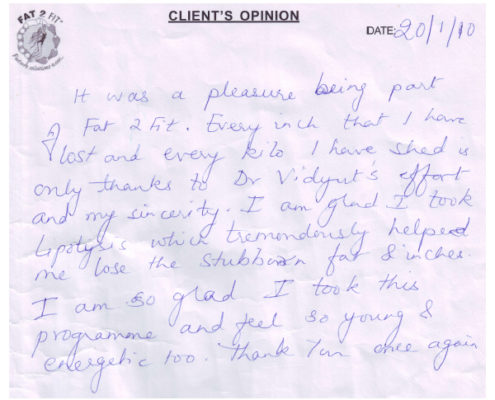 FAT 2 FIT
CLIENT'S OPINION
DATE: 20/1/10
It was a pleasure being part
of Fat 2 Fit. Every inch that I have
lost and every kilo I have shed is
only thanks to Dr Vidyut's effort
and my sincerity. I am glad I took
Lipolysis which tremendously helped
me lose the stubborn fat & inches.
I am so glad I took this
programme and feel so young &
energetic too. Thank You once again